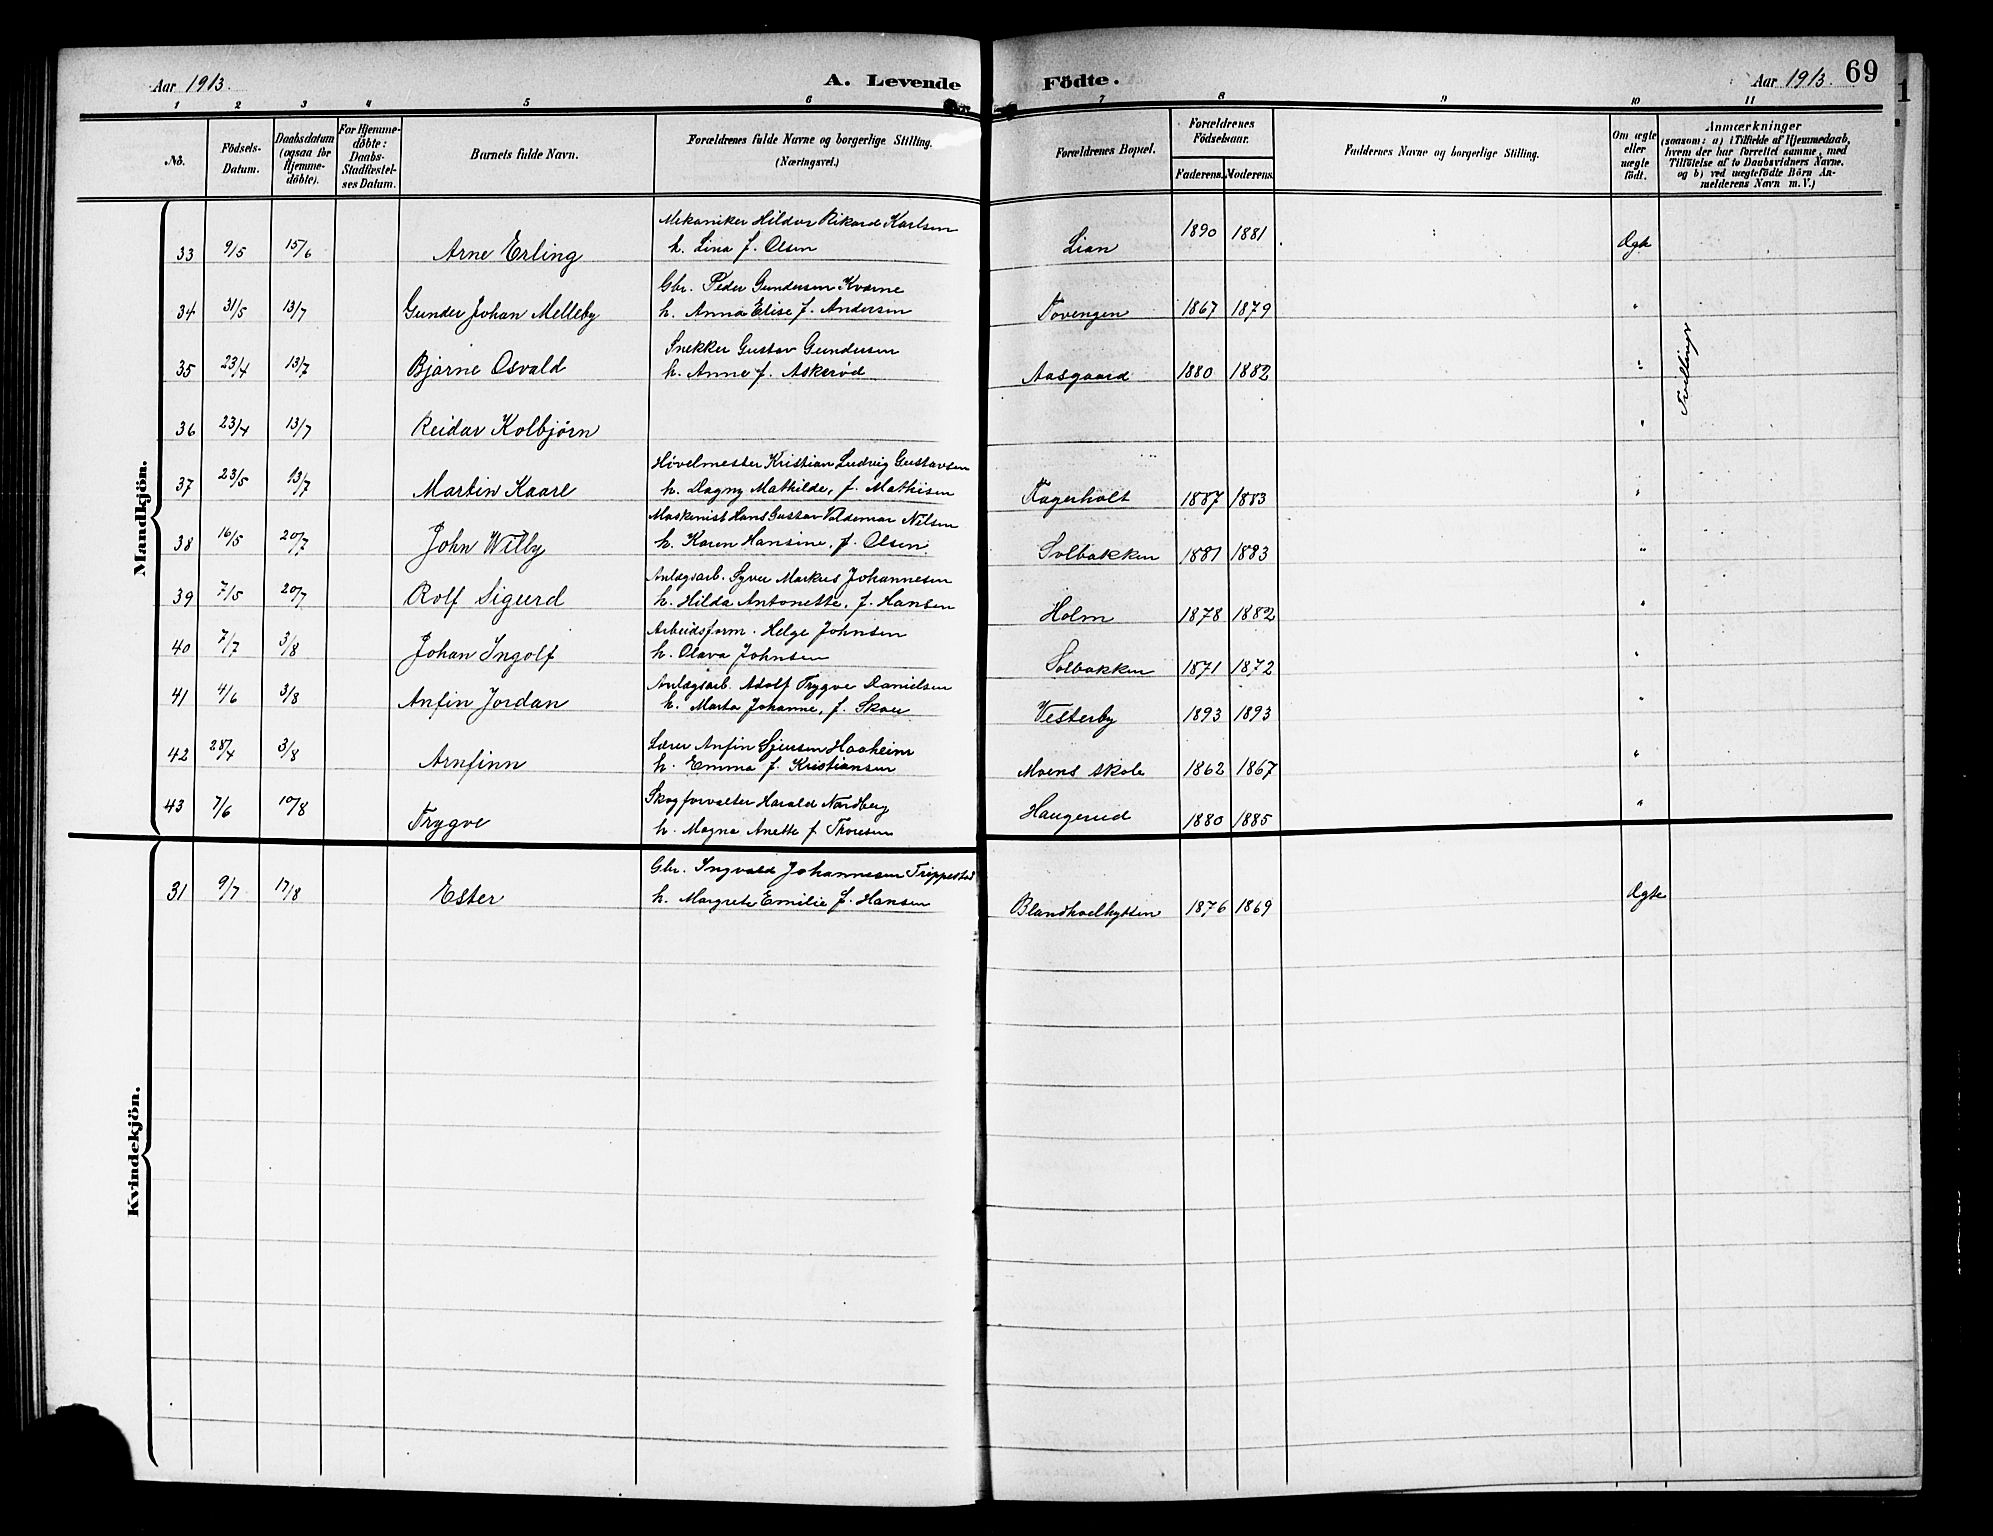 Aar 1913. A. Levende Födte. Aar 1913. 69
1 2 3 4 5 6 7 8 9 10 11
No. Födsels-Datum. Daabsdatum (ogsaa for Hjemme-döbte). For Hjemme-döbte: Daabs-Stadfæstel-ses Datum. Barnets fulde Navn. Forældrenes fulde Navne og borgerlige Stilling. (Næringsvei.) Forældrenes Bopæl. Forældrenes Födselsaar. Faderens. Moderens. Faddernes Navne og borgerlige Stilling. Om ægte eller uægte födt. Anmærkninger (saasom: a) i Tilfælde af Hjemmedaab, hvem der har forrettet samme, med Tilföielse af to Daabsvidners Navne, og b) ved uægtefödte Börn An-melderens Navn m. V.)
Mandkjön.
Mekaniker Hildor Rikard Karlsen
33 9/5 15/6 Arne Erling h. Lina f. Olsen Lian 1890 1881 Ægte
Gbr. Peder Gundersen Kværne
34 31/5 13/7 Gunder Johan Melleby h. Anna Elise f. Andersen Tovengen 1867 1879 "
Snekker Gustav Gundersen
35 23/4 13/7 Bjarne Osvald h. Anne f. Askerød Aasgaard 1880 1882 " Tvillinger
36 23/4 13/7 Reidar Kolbjörn "
Høvelmester Kristian Ludvig Gustavsen
37 23/5 13/7 Martin Kaare h. Dagny Mathilde, f. Mathisen Fagerholt 1887 1883 "
Maskinist Hans Gustav Valdemar Nilsen
38 16/5 20/7 John Wilby h. Karen Hansine, f. Olsen. Solbakken 1881 1883 "
Anlægsarb. Syver Markus Johannesen
39 7/5 20/7 Rolf Sigurd h. Hilda Antonette, f. Hansen Holm 1878 1882 "
Arbeidsform. Helge Johnsen
40 7/7 3/8 Johan Ingolf h. Olava Johnsen Solbakken 1871 1872 "
Anlægsarb. Adolf Trygve Danielsen
41 4/6 3/8 Anfin Jordan h. Marta Johanne, f. Skou Vesterby 1893 1893 "
Lærer Anfin Haaheim
42 28/4 3/8 Arnfinn h. Emma f. Kristiansen Moens skole 1862 1867 "
Skogforvalter Harald Nordberg
43 7/6 10/8 Trygve h. Magna Anette f. Thoresen Haugerud 1880 1885 "
Kvindekjön.
Gbr. Ingvald Johannesen Trippestad
31 9/7 17/8 Ester h. Margrete Emilie f. Hansen 1876 1869 Ægte